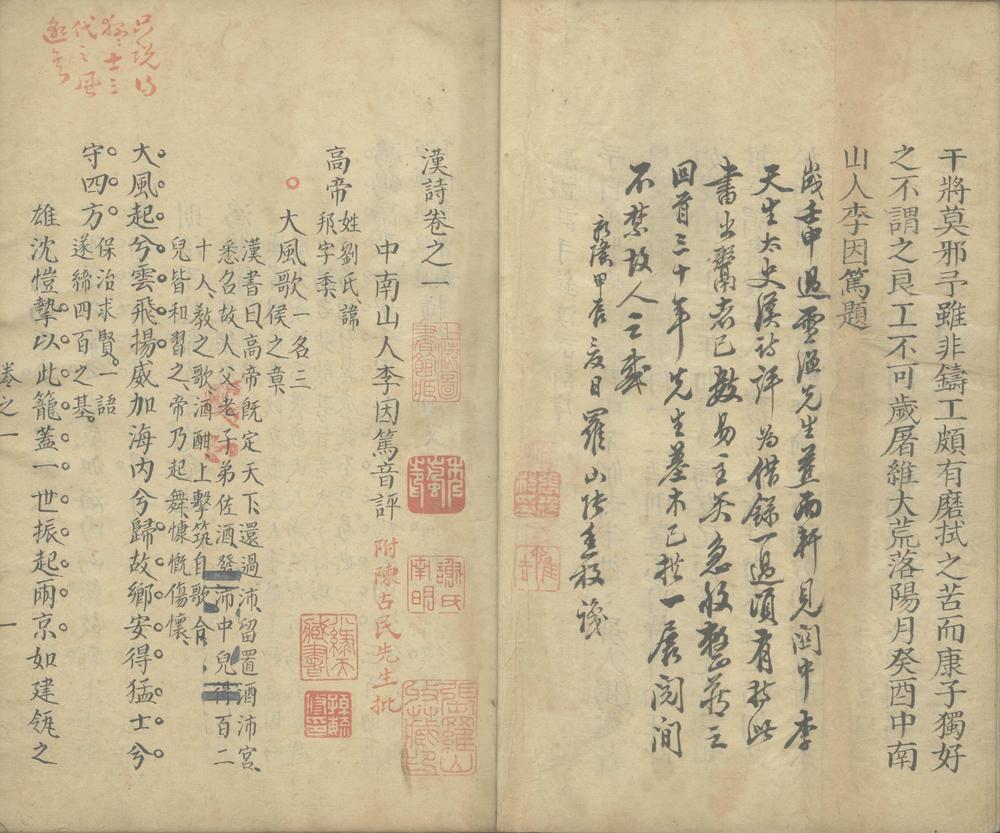 干將莫邪予雖非鑄工頗有磨拭之苦而康子獨好
之不謂之良工不可歲屠維大荒落陽月癸酉中南
山人李因篤題
歲壬申過雪漁先生蓋雨軒見關中李
天生太史漢詩評為借錄一過頃有携此
書出鬻者已數易主矣急收整藏之
回首三十年先生墓木已拱一展閱間
不禁故人之感
康熙甲辰夏日羅山張
漢詩卷之一
中南山人李因篤音評
附陳占民先生批
高帝姓劉氏諱
邦字季
大風歌一名三
侯之章
漢書曰高帝既定天下還過沛留置酒沛宮
悉召故人父老子弟佐酒發沛中兒得百二
十人教之歌酒酣上擊筑自歌令
兒皆和習之帝乃起舞慷慨傷懷
大風起兮雲飛揚威加海內兮歸故鄉安得猛士兮
守四方保治求賢一語
遂締四百之基
雄沈愷摯以此籠蓋一世振起兩京如建瓴之
卷之一
一
只說得
猛士三
代之風
邈矣
謝氏
南明
張羅山